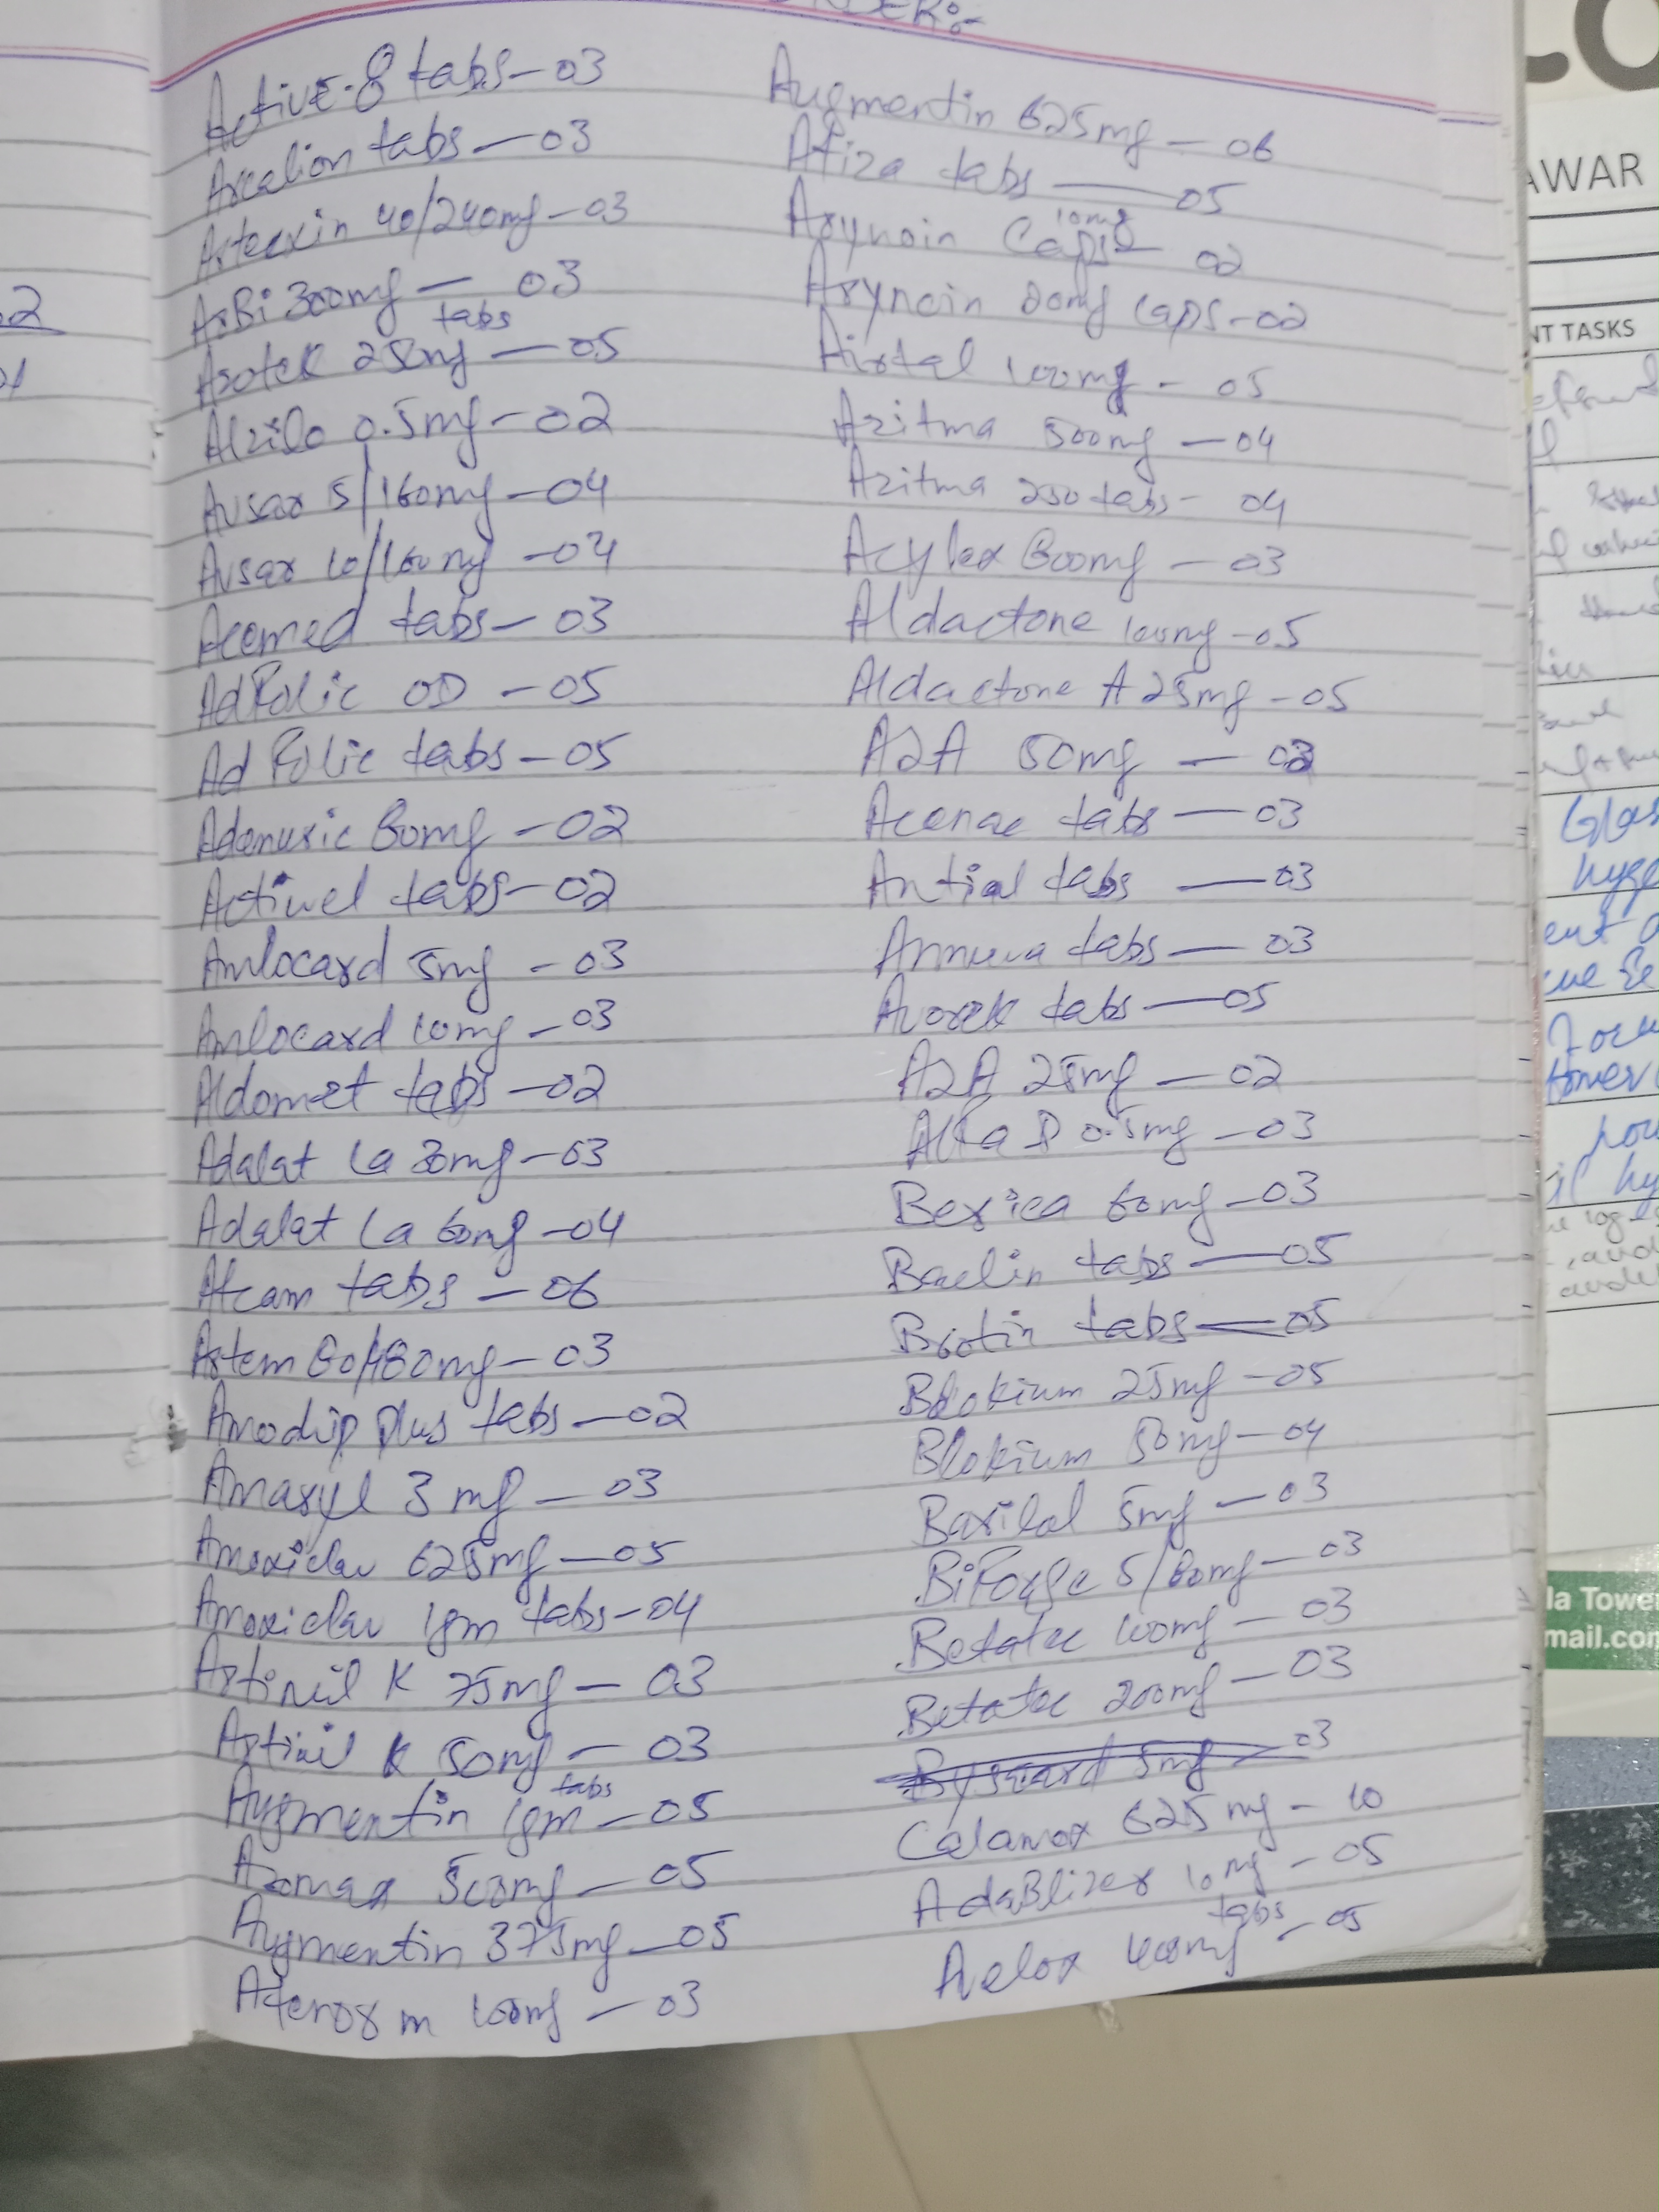 ORDER:-
Active-8 tabs-03
Arcalion tabs-03
Artecxin 40/240mg-03
AsBi 300mg-03
Asotek 25mg tabs-05
Alzilo 0.5mg-02
Avsar 5/160mg-04
Avsar 10/160mg-04
Acemed tabs-03
AdFolic OD-05
AdFolic tabs-05
Adenuric 80mg-02
Actiwel tabs-02
Amlocard 5mg-03
Amlocard 10mg-03
Aldomet tabs-02
Adalat La 30mg-03
Adalat La 60mg-04
Atcam tabs-06
Artem 80/480mg-03
Amodip plus tabs-02
Amaryl 3mg-03
Amoxiclav 625mg-05
Amoxiclav 1gm tabs-04
Artinil K 75mg-03
Artinil K 50mg-03
Augmentin 1gm tabs-05
Azomax 500mg-05
Augmentin 375mg-05
m 100mg-03
Augmentin 625mg-06
Atiza tabs-05
Arynoin 10mg Caps-02
Arynoin 20mg Caps-02
Airtal 100mg-05
Azitma 500mg-04
Azitma 250 tabs-04
Acylex 800mg-03
Aldactone 100mg-05
Aldactone A 25mg-05
A2A 50mg-03
Acenac tabs-03
Antial tabs-03
Annuva tabs-03
Avorek tabs-05
A2A 25mg-02
Alfa D 0.5mg-03
Bexica 60mg-03
Baclin tabs-05
Biotin tabs-05
Blokium 25mg-05
Blokium 50mg-04
Barilol 5mg-03
BiForge 5/80mg-03
Betatec 100mg-03
Betatec 200mg-03
5mg-03
Calamox 625mg-10
AdaBlizer 10mg-05
Avelox 400mg tabs-05
AWAR
NT TASKS
la Tower
mail.com